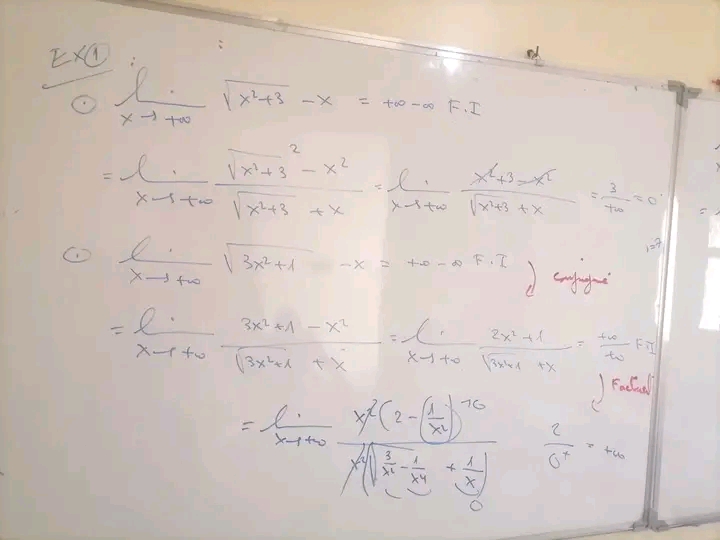 EX① :
⊙ lim x→+∞ √(x²+3) - x = +∞ - ∞ F.I
= lim x→+∞ (√(x²+3)² - x²)/(√(x²+3) + x) = lim x→+∞ (x²+3-x²)/(√(x²+3) + x) = 3/+∞ = 0
⊙ lim x→+∞ √(3x²+1) - x = +∞ - ∞ F.I conjugué
= lim x→+∞ (3x²+1 - x²)/(√(3x²+1) + x) = lim x→+∞ (2x²+1)/(√(3x²+1) + x) = +∞/+∞ F.I
= lim x→+∞ x²(2 - (1/x²))→0 / x²(√(3/x² - 1/x⁴) + 1/x) 0 2/0⁺ = +∞